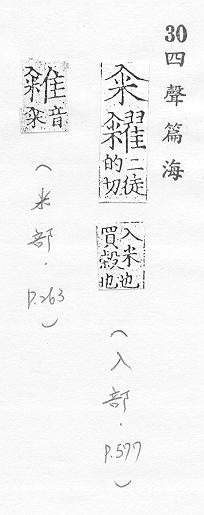 30四聲篇海
籴糴二徒的切入米也買穀也(入部.P.577)
音籴(米部.P.263)